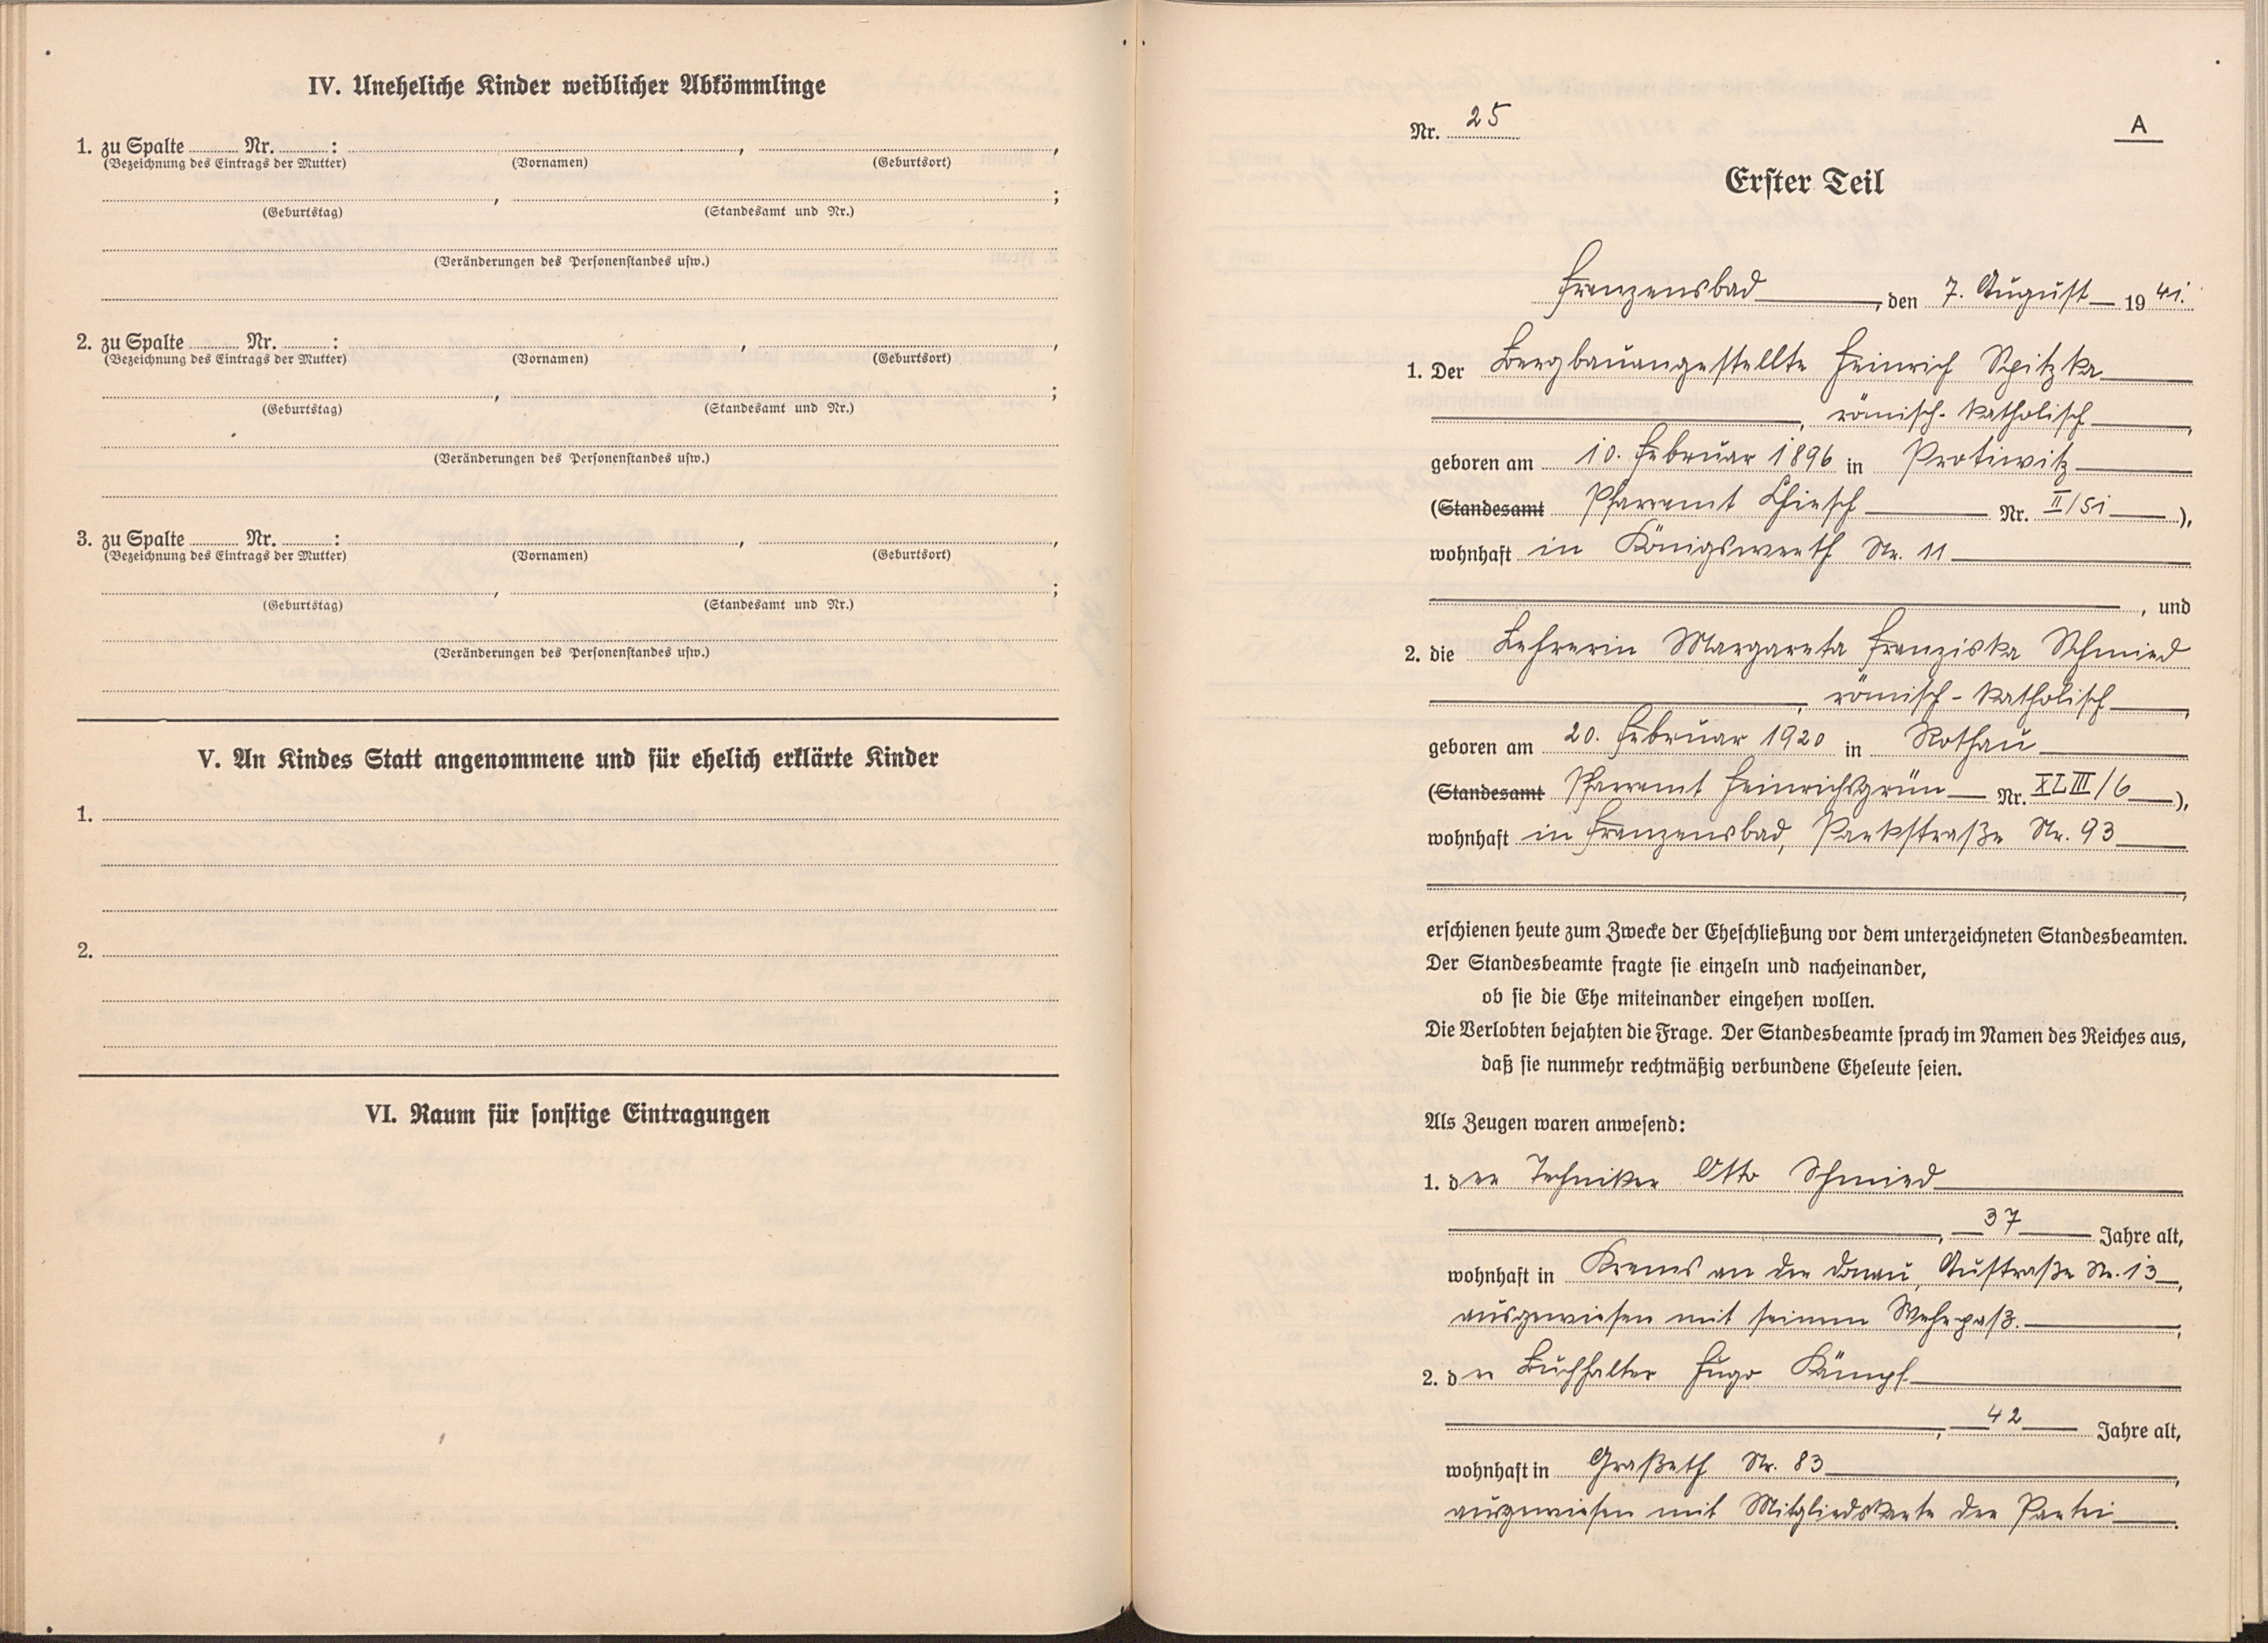 IV. Uneheliche Kinder weiblicher Abkömmlinge
1. zu Spalte Nr. : , ,
(Bezeichnung des Eintrags der Mutter) (Vornamen) (Geburtsort)
, ;
(Geburtstag) (Standesamt und Nr.)
(Veränderungen des Personenstandes usw.)
2. zu Spalte Nr. : , ,
(Bezeichnung des Eintrags der Mutter) (Vornamen) (Geburtsort)
, ;
(Geburtstag) (Standesamt und Nr.)
(Veränderungen des Personenstandes usw.)
3. zu Spalte Nr. : , ,
(Bezeichnung des Eintrags der Mutter) (Vornamen) (Geburtsort)
, ;
(Geburtstag) (Standesamt und Nr.)
(Veränderungen des Personenstandes usw.)
V. An Kindes Statt angenommene und für ehelich erklärte Kinder
1.
2.
VI. Raum für sonstige Eintragungen
Nr. 25
A
Erster Teil
Franzensbad, den 7. August 1941.
1. Der Bergbauangestellte Heinrich Spitzka
, römisch-katholisch,
geboren am 10. Februar 1896 in Protiwitz
(Standesamt Pfarramt Chiesch Nr. II/51),
wohnhaft in Königswerth Nr. 11
, und
2. die Lehrerin Margareta Franziska Schmied
, römisch-katholisch,
geboren am 20. Februar 1920 in Rothau
(Standesamt Pfarramt Heinrichsgrün Nr. XLIII/6),
wohnhaft in Franzensbad, Parkstraße Nr. 93
,
erschienen heute zum Zwecke der Eheschließung vor dem unterzeichneten Standesbeamten.
Der Standesbeamte fragte sie einzeln und nacheinander,
ob sie die Ehe miteinander eingehen wollen.
Die Verlobten bejahten die Frage. Der Standesbeamte sprach im Namen des Reiches aus,
daß sie nunmehr rechtmäßig verbundene Eheleute seien.
Als Zeugen waren anwesend:
1. der Techniker Otto Schmied
, 37 Jahre alt,
wohnhaft in Krems an der Donau, Austraße Nr. 13,
ausgewiesen mit seinem Wehrpaß.;
2. der Buchhalter Hugo Kämpf
, 42 Jahre alt,
wohnhaft in Graßeth Nr. 83,
ausgewiesen mit Mitgliedskarte der Partei.